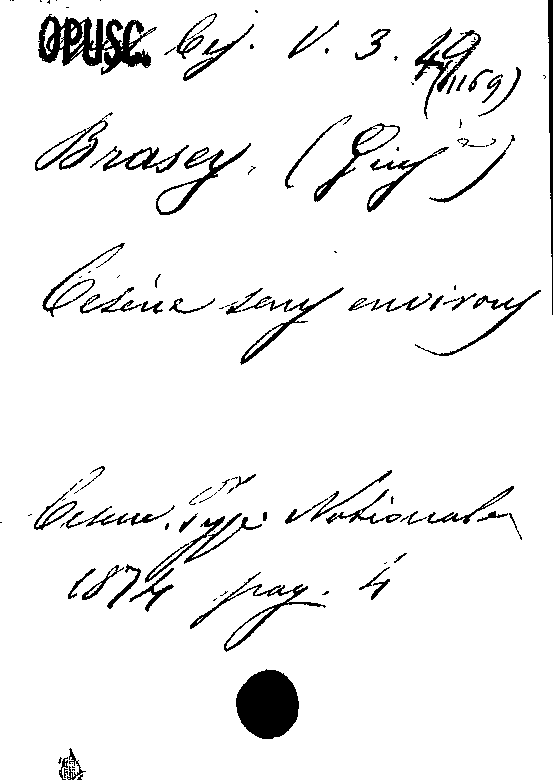 OPUSC. Cej. V. 3. 49
(1169)
Brasey. (Giuy)
Céséne seny environy
Cesene. Typ: Nationale
1874 pag. 4